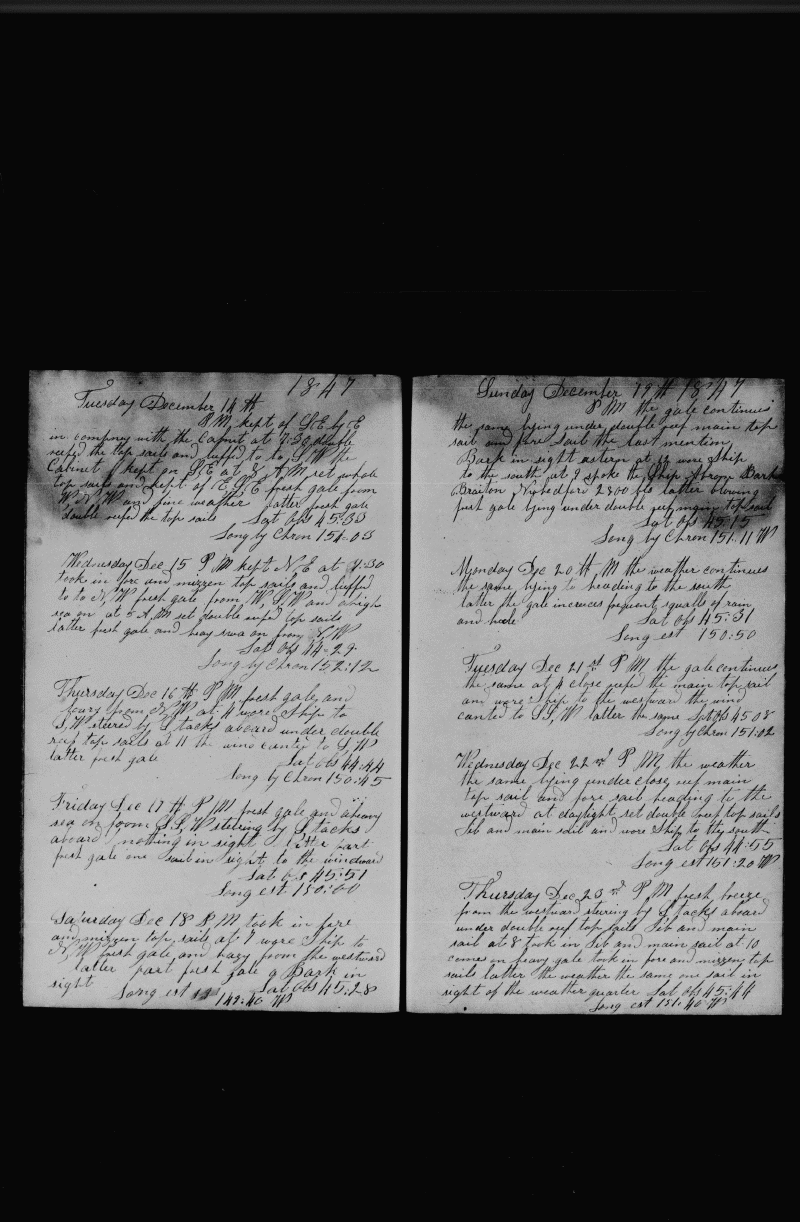 1847
Tuesday December 14 th
P M kept of S E by E
in company with the Capnet at 7:30 double
reefed the top sails and luffed to to S W the
Cabinet kept on S E at 8 A M set whole
top sails and kept of E S E fresh gale from
W N W and fine weather latter fresh gale
double reefed the top sails Lat obs 45:33
Long by Chron 151:03
Wednesday Dec 15 P M kept N E at 7:30
took in fore and mizzen top sails and luffed
to to N W fresh gale from W S W and a high
sea on at 5 A M set double reefed top sails
latter fresh gale and heavy sea on from S W
Lat obs 44:29
Long by Chron 152:12
Thursday Dec 16 th P M fresh gale and
from N W at 4 wore Ship to
S W stered by S tacks aboard under double
reef top sails at 11 the wind canted to S W
latter fresh gale Lat obs 44:44
Long by Chron 150:45
Friday Dec 17 th P M fresh gale and a heavy
sea on from S S W stering by S tacks
aboard nothing in sight latter part
fresh gale one sail in sight to the windward
Lat obs 45:51
Long est 150:00
Saturday Dec 18 P M took in fore
and mizzen top sails at 7 wore Ship to
N W fresh gale and hazy from the westward
latter part fresh gale a Bark in
sight Lat obs 45:28
Long est 149:40 W
Sunday December 19 th 1847
P M the gale continues
the same lying under double reef main top
sail and fore sail the last mention
Bark in sight astern at wore Ship
to the south at 9 spoke the Ship Bark
Braxton Nybedford 2800 bls latter blowing
fresh gale lying under double reef main top sail
Lat obs 45:15
Long by Chron 151:11 W
Monday Dec 20 th P M the weather continues
the same lying to heading to the south
latter the gale increces frequent squalls of rain
and haele Lat obs 45:31
Long est 150:50
Tuesday Dec 21 st P M the gale continues
the same at 4 close reefed the main top sail
and wore Ship to the westward the wind
canted to S S W latter the same Lat obs 45 08
Long by Chron 151:02
Wednesday Dec 22 nd P M the weather
the same lying under close reef main
top sail and fore sail heading to the
westward at daylight set double reef top sails
Jib and main sail and wore Ship to the south
Lat obs 44:55
Long est 151:20 W
Thursday Dec 23 rd P M fresh breeze
from the westward stering by S tacks aboard
under double reef top sails Jib and main
sail at 8 took in Jib and main sail at 10
comes on heavy gale took in fore and mizzen top
sails latter the weather the same one sail in
sight of the weather quarter Lat obs 45:44
Long est 151:40 W